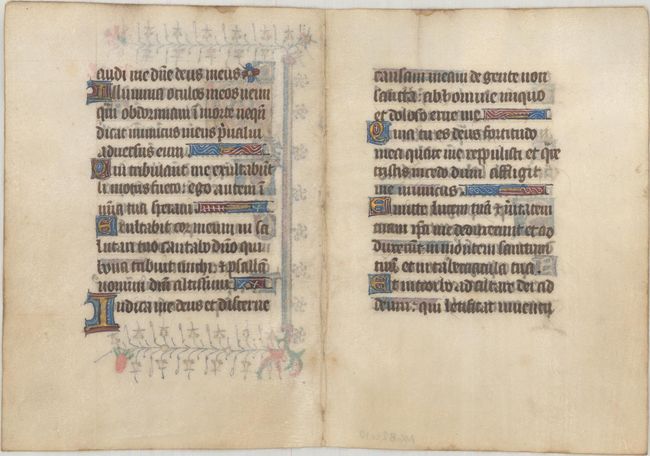 audi me dn̄e deus meus
Illumina oculos meos ne un
qm̄ obdormiam ī morte neqn̄
dicat inimicus meus p̄ualui
aduersus eum
Qui tribulant me exultabūt
si motus fuero: ego autem ī
mīa tua speraui
Exultabit cor meum in sa
lutari tuo cantabo dn̄o qui
bona tribuit michi: & psallā
nomini dn̄i altissimi
Iudica me deus et discerne
causam meam de gente non
sancta: ab homine iniquo
et doloso erue me
Quia tu es deus fortitudo
mea quare me reppulisti et qr̄e
tristis incedo dum affligit
me inimicus
Emitte lucem tuā & ūitatem
tuam ip̄a me deduxerunt et ad
duxerunt in montem sanctum
tuū et in tabernacula tua.
Et introibo ad altare dei ad
deum: qui letificat iuuentu